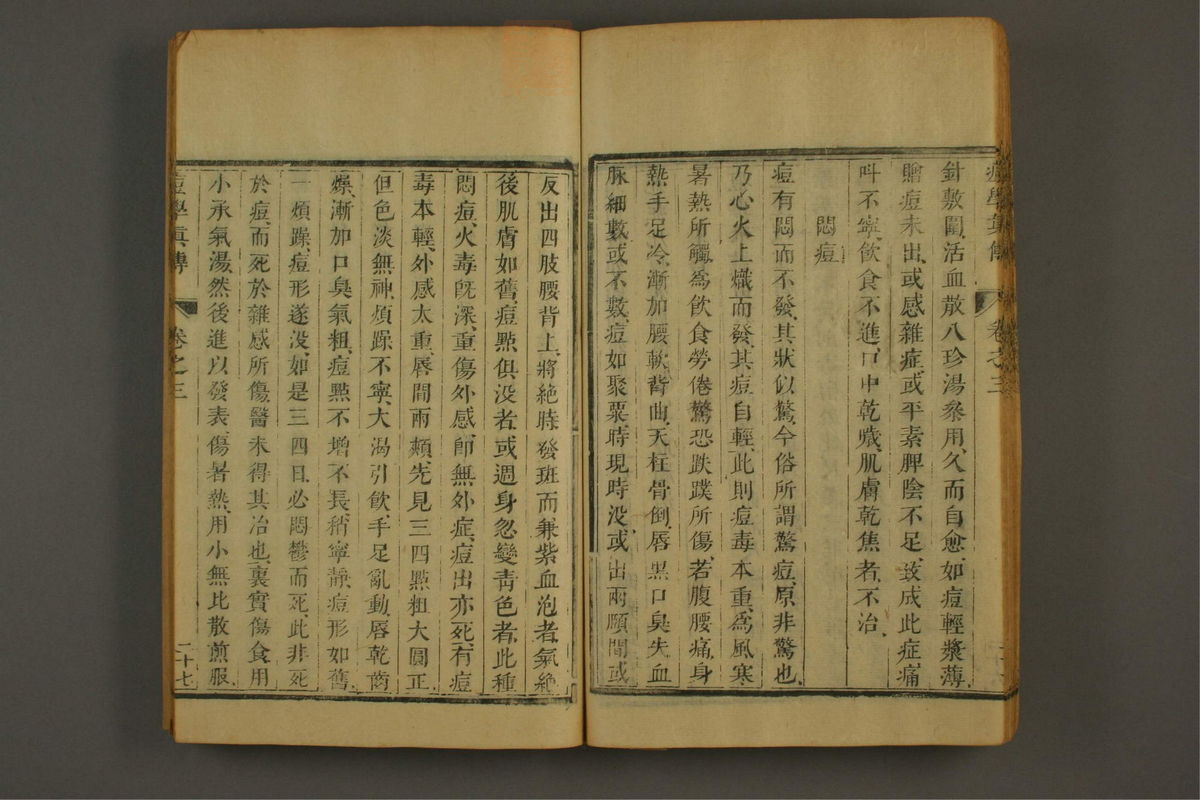 痘學眞傳 卷之三
針敷圍、活血散八珍湯叅用、久而自愈、如痘輕漿薄、
贈痘未出、或感雜症、或平素脾陰不足、致成此症、痛
呌不寧、飲食不進、口中乾 肌膚乾焦者、不治、
悶痘
痘有悶而不發、其狀似驚、今俗所謂驚痘、原非驚也、
乃心火上熾而發、其痘自輕、此則痘毒本重、爲風寒
暑熱所觸、爲飲食勞倦驚恐跌蹼所傷、若腹腰痛、身
熱手足冷、漸加腰軟背曲、天柱骨倒、唇黑口臭失血
脉細數或不數、痘如聚粟、時現時没、或出兩頤間、或
反出四肢腰背上、將絶時、發斑而兼紫血泡者、氣絶
後肌膚如舊、痘㸃俱没者、或週身忽變靑色者、此種
悶痘、火毒旣深、重傷外感、卽無外症、痘出亦死、有痘
毒本輕、外感太重、唇間兩頰、先見三四㸃、粗大圓正
但色淡無神、煩躁不寧、大渴引飲、手足亂動、唇乾齒
燥、漸加口臭氣粗、痘㸃不增不長、稍寧靜、痘形如舊
一煩躁、痘形遂没、如是三四日、必悶鬱而死、此非死
於痘、而死於雜感所傷、醫未得其冶也、裏實傷食、用
小承氣湯、然後進以發表、傷暑熱、用小無比散煎服、
痘學眞傳 卷之三 二十七